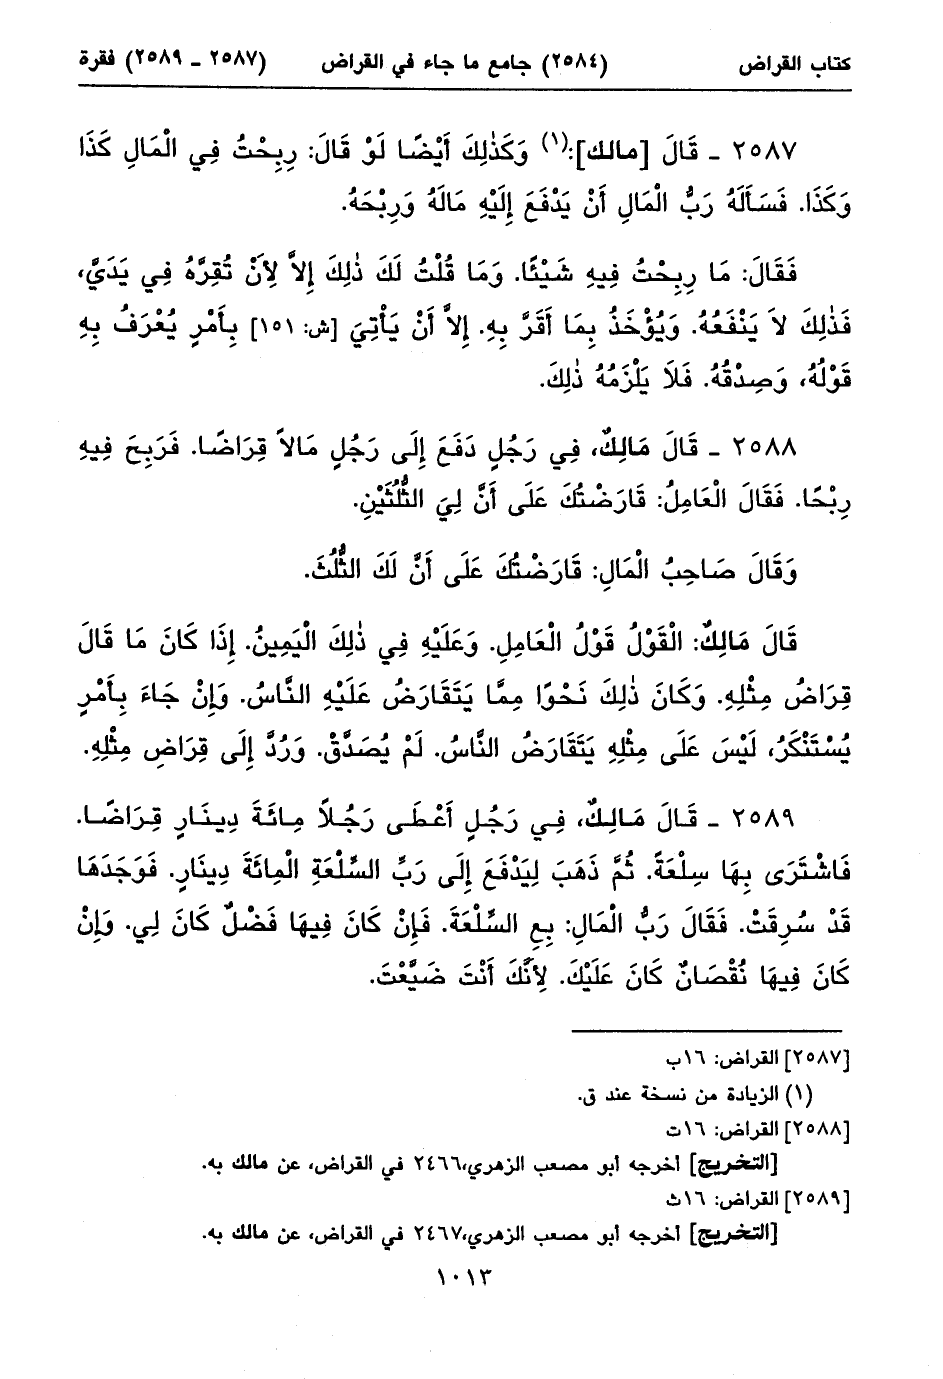 كتاب القراض (٢٥٨٤) جامع ما جاء في القراض (٢٥٨٧ ـ ٢٥٨٩) فقرة
٢٥٨٧ ـ قَالَ [مالك]:(١) وَكَذٰلِكَ أَيْضًا لَوْ قَالَ: رِبِحْتُ فِي الْمَالِ كَذَا
وَكَذَا. فَسَأَلَهُ رَبُّ الْمَالِ أَنْ يَدْفَعَ إِلَيْهِ مَالَهُ وَرِبْحَهُ.
فَقَالَ: مَا رِبِحْتُ فِيهِ شَيْئًا. وَمَا قُلْتُ لَكَ ذٰلِكَ إِلاَّ لِأَنْ تُقِرَّهُ فِي يَدَيَّ،
فَذٰلِكَ لاَ يَنْفَعُهُ. وَيُؤْخَذُ بِمَا أَقَرَّ بِهِ. إِلاَّ أَنْ يَأْتِيَ [ش: ١٥١] بِأَمْرٍ يُعْرَفُ بِهِ
قَوْلُهُ، وَصِدْقُهُ. فَلاَ يَلْزَمُهُ ذٰلِكَ.
٢٥٨٨ ـ قَالَ مَالِكٌ، فِي رَجُلٍ دَفَعَ إِلَى رَجُلٍ مَالاً قِرَاضًا. فَرَبِحَ فِيهِ
رِبْحًا. فَقَالَ الْعَامِلُ: قَارَضْتُكَ عَلَى أَنَّ لِيَ الثُّلُثَيْنِ.
وَقَالَ صَاحِبُ الْمَالِ: قَارَضْتُكَ عَلَى أَنَّ لَكَ الثُّلُثَ.
قَالَ مَالِكٌ: الْقَوْلُ قَوْلُ الْعَامِلِ. وَعَلَيْهِ فِي ذٰلِكَ الْيَمِينُ. إِذَا كَانَ مَا قَالَ
قِرَاضُ مِثْلِهِ. وَكَانَ ذٰلِكَ نَحْوًا مِمَّا يَتَقَارَضُ عَلَيْهِ النَّاسُ. وَإِنْ جَاءَ بِأَمْرٍ
يُسْتَنْكَرُ، لَيْسَ عَلَى مِثْلِهِ يَتَقَارَضُ النَّاسُ. لَمْ يُصَدَّقْ. وَرُدَّ إِلَى قِرَاضِ مِثْلِهِ.
٢٥٨٩ ـ قَالَ مَالِكٌ، فِي رَجُلٍ أَعْطَى رَجُلاً مِائَةَ دِينَارٍ قِرَاضًا.
فَاشْتَرَى بِهَا سِلْعَةً. ثُمَّ ذَهَبَ لِيَدْفَعَ إِلَى رَبِّ السِّلْعَةِ الْمِائَةَ دِينَارٍ. فَوَجَدَهَا
قَدْ سُرِقَتْ. فَقَالَ رَبُّ الْمَالِ: بِعِ السِّلْعَةَ. فَإِنْ كَانَ فِيهَا فَضْلٌ كَانَ لِي. وَإِنْ
كَانَ فِيهَا نُقْصَانٌ كَانَ عَلَيْكَ. لِأَنَّكَ أَنْتَ ضَيَّعْتَ.
[٢٥٨٧] القراض: ١٦ب
(١) الزيادة من نسخة عند ق.
[٢٥٨٨] القراض: ١٦ت
[التخريج] أخرجه أبو مصعب الزهري،٢٤٦٦ في القراض، عن مالك به.
[٢٥٨٩] القراض: ١٦ث
[التخريج] أخرجه أبو مصعب الزهري،٢٤٦٧ في القراض، عن مالك به.
١٠١٣